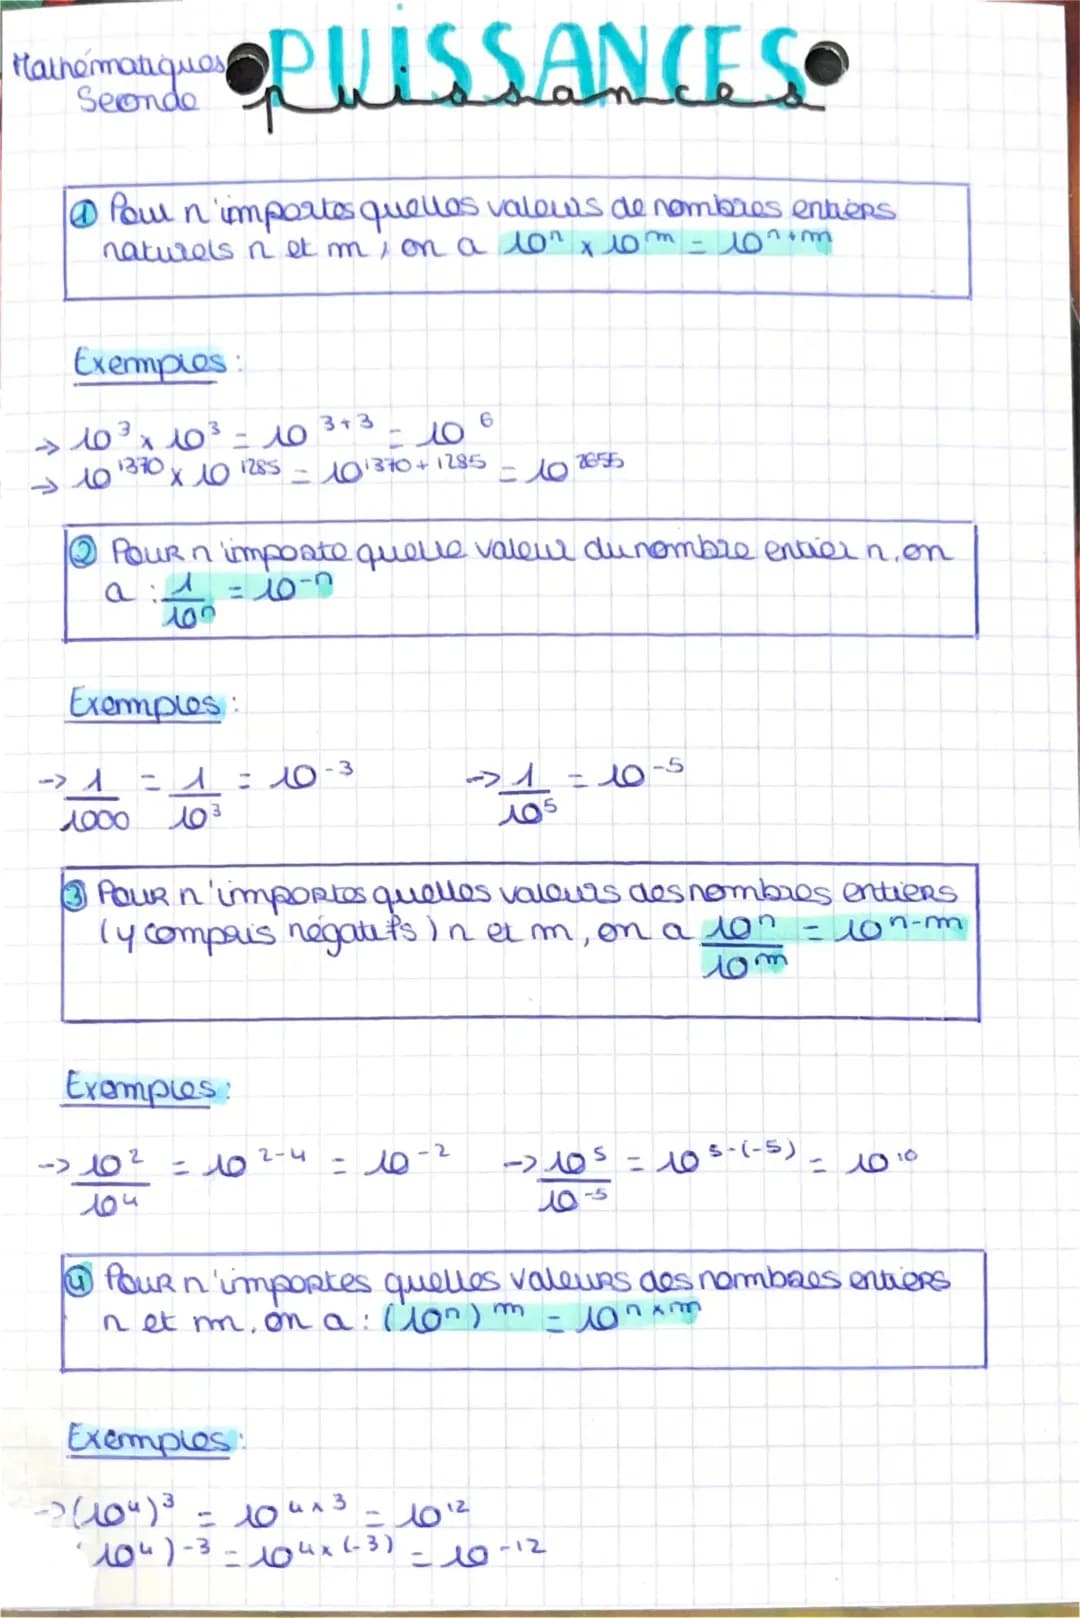 Mathématiques
Seconde
PUISSANCES
puissances
① Pour n'importes quelles valeurs de nombres entiers
naturels n et m, on a 10ⁿ × 10ᵐ = 10ⁿ⁺ᵐ
Exemples :
→ 10³ × 10³ = 10³⁺³ = 10⁶
→ 10¹³⁷⁰ × 10¹²⁸⁵ = 10¹³⁷⁰⁺¹²⁸⁵ = 10²⁶⁵⁵
② Pour n'importe quelle valeur du nombre entier n, on
a : 1/10ⁿ = 10⁻ⁿ
Exemples :
→ 1/1000 = 1/10³ = 10⁻³ → 1/10⁵ = 10⁻⁵
③ Pour n'importes quelles valeurs des nombres entiers
(y compris négatifs) n et m, on a 10ⁿ/10ᵐ = 10ⁿ⁻ᵐ
Exemples :
→ 10²/10⁴ = 10²⁻⁴ = 10⁻² → 10⁵/10⁻⁵ = 10⁵⁻⁽⁻⁵⁾ = 10¹⁰
④ Pour n'importes quelles valeurs des nombres entiers
n et m, on a : (10ⁿ)ᵐ = 10ⁿˣᵐ
Exemples :
→ (10⁴)³ = 10⁴ˣ³ = 10¹²
10⁴)⁻³ = 10⁴ˣ⁽⁻³⁾ = 10⁻¹²